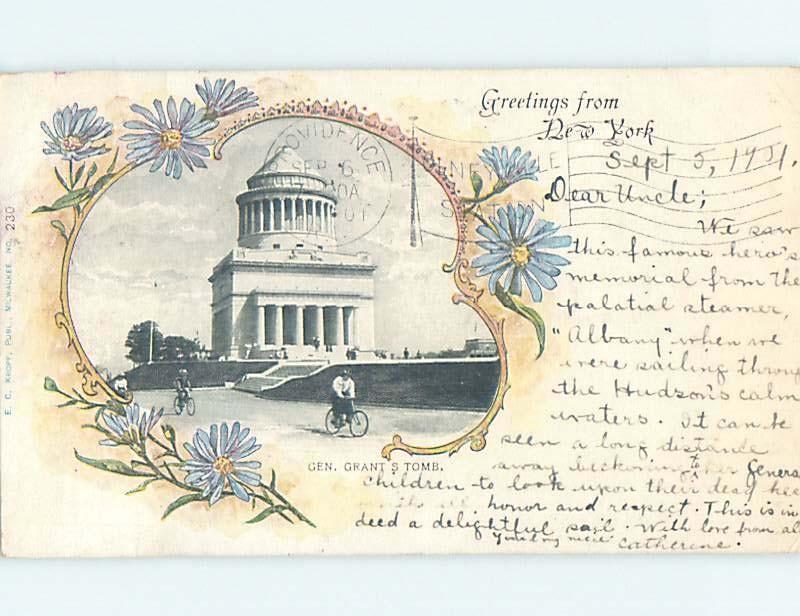 Greetings from
New York
PROVIDENCE
SEP 6
Sept 5, 1901.
Dear Uncle;
We saw
this famous hero's
memorial from the
palatial steamer,
"Albany" when we
were sailing throug
the Hudson's calm
waters. It can be
seen a long distance
away beckoning to her
children to look upon their dead
honor and respect. This is in
deed a delightful sail. With love from all
Your loving niece Catherine.
GEN. GRANT'S TOMB.
E. C. KROPP, PUBL., MILWAUKEE. NO. 230